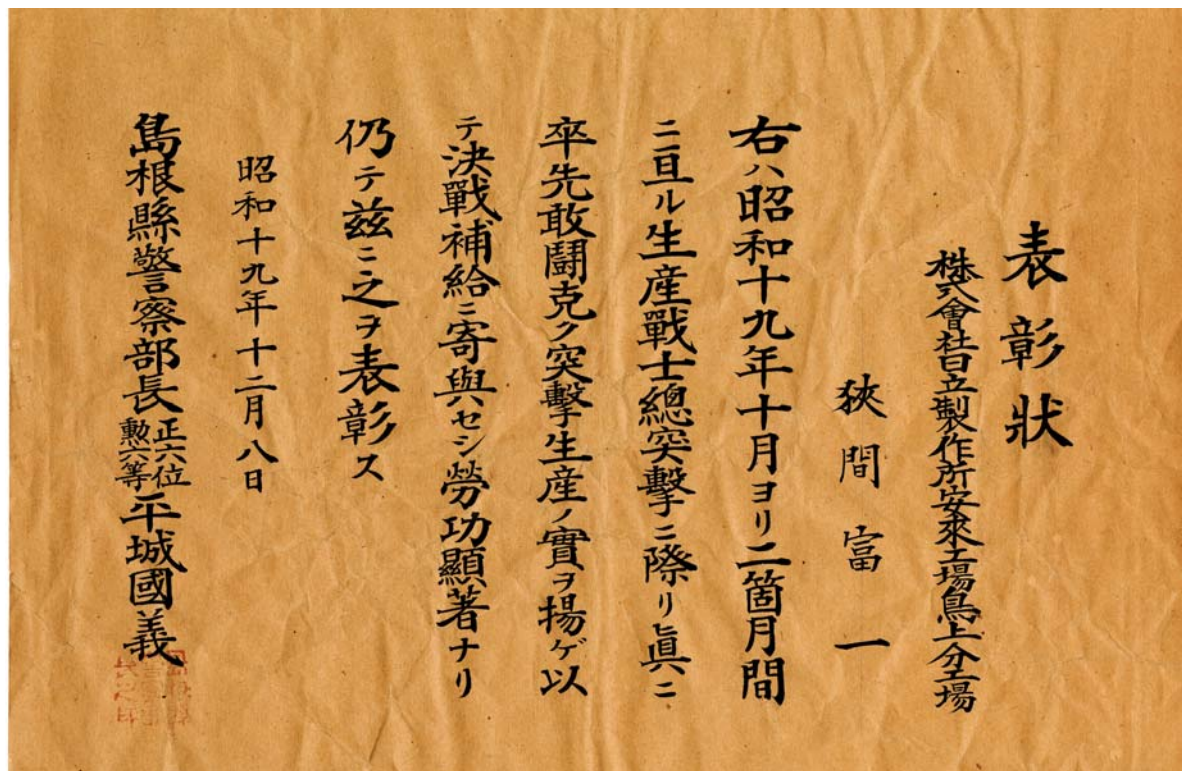 表彰狀
株式會社日立製作所安來工場鳥上分工場
狹間富一
右ハ昭和十九年十月ヨリ二箇月間
ニ亘ル生産戰士總突擊ニ際リ眞ニ
卒先敢鬪克ク突擊生産ノ實ヲ揚ゲ以
テ決戰補給ニ寄與セシ勞功顯著ナリ
仍テ茲ニ之ヲ表彰ス
昭和十九年十二月八日
島根縣警察部長正六位勲六等平城國義